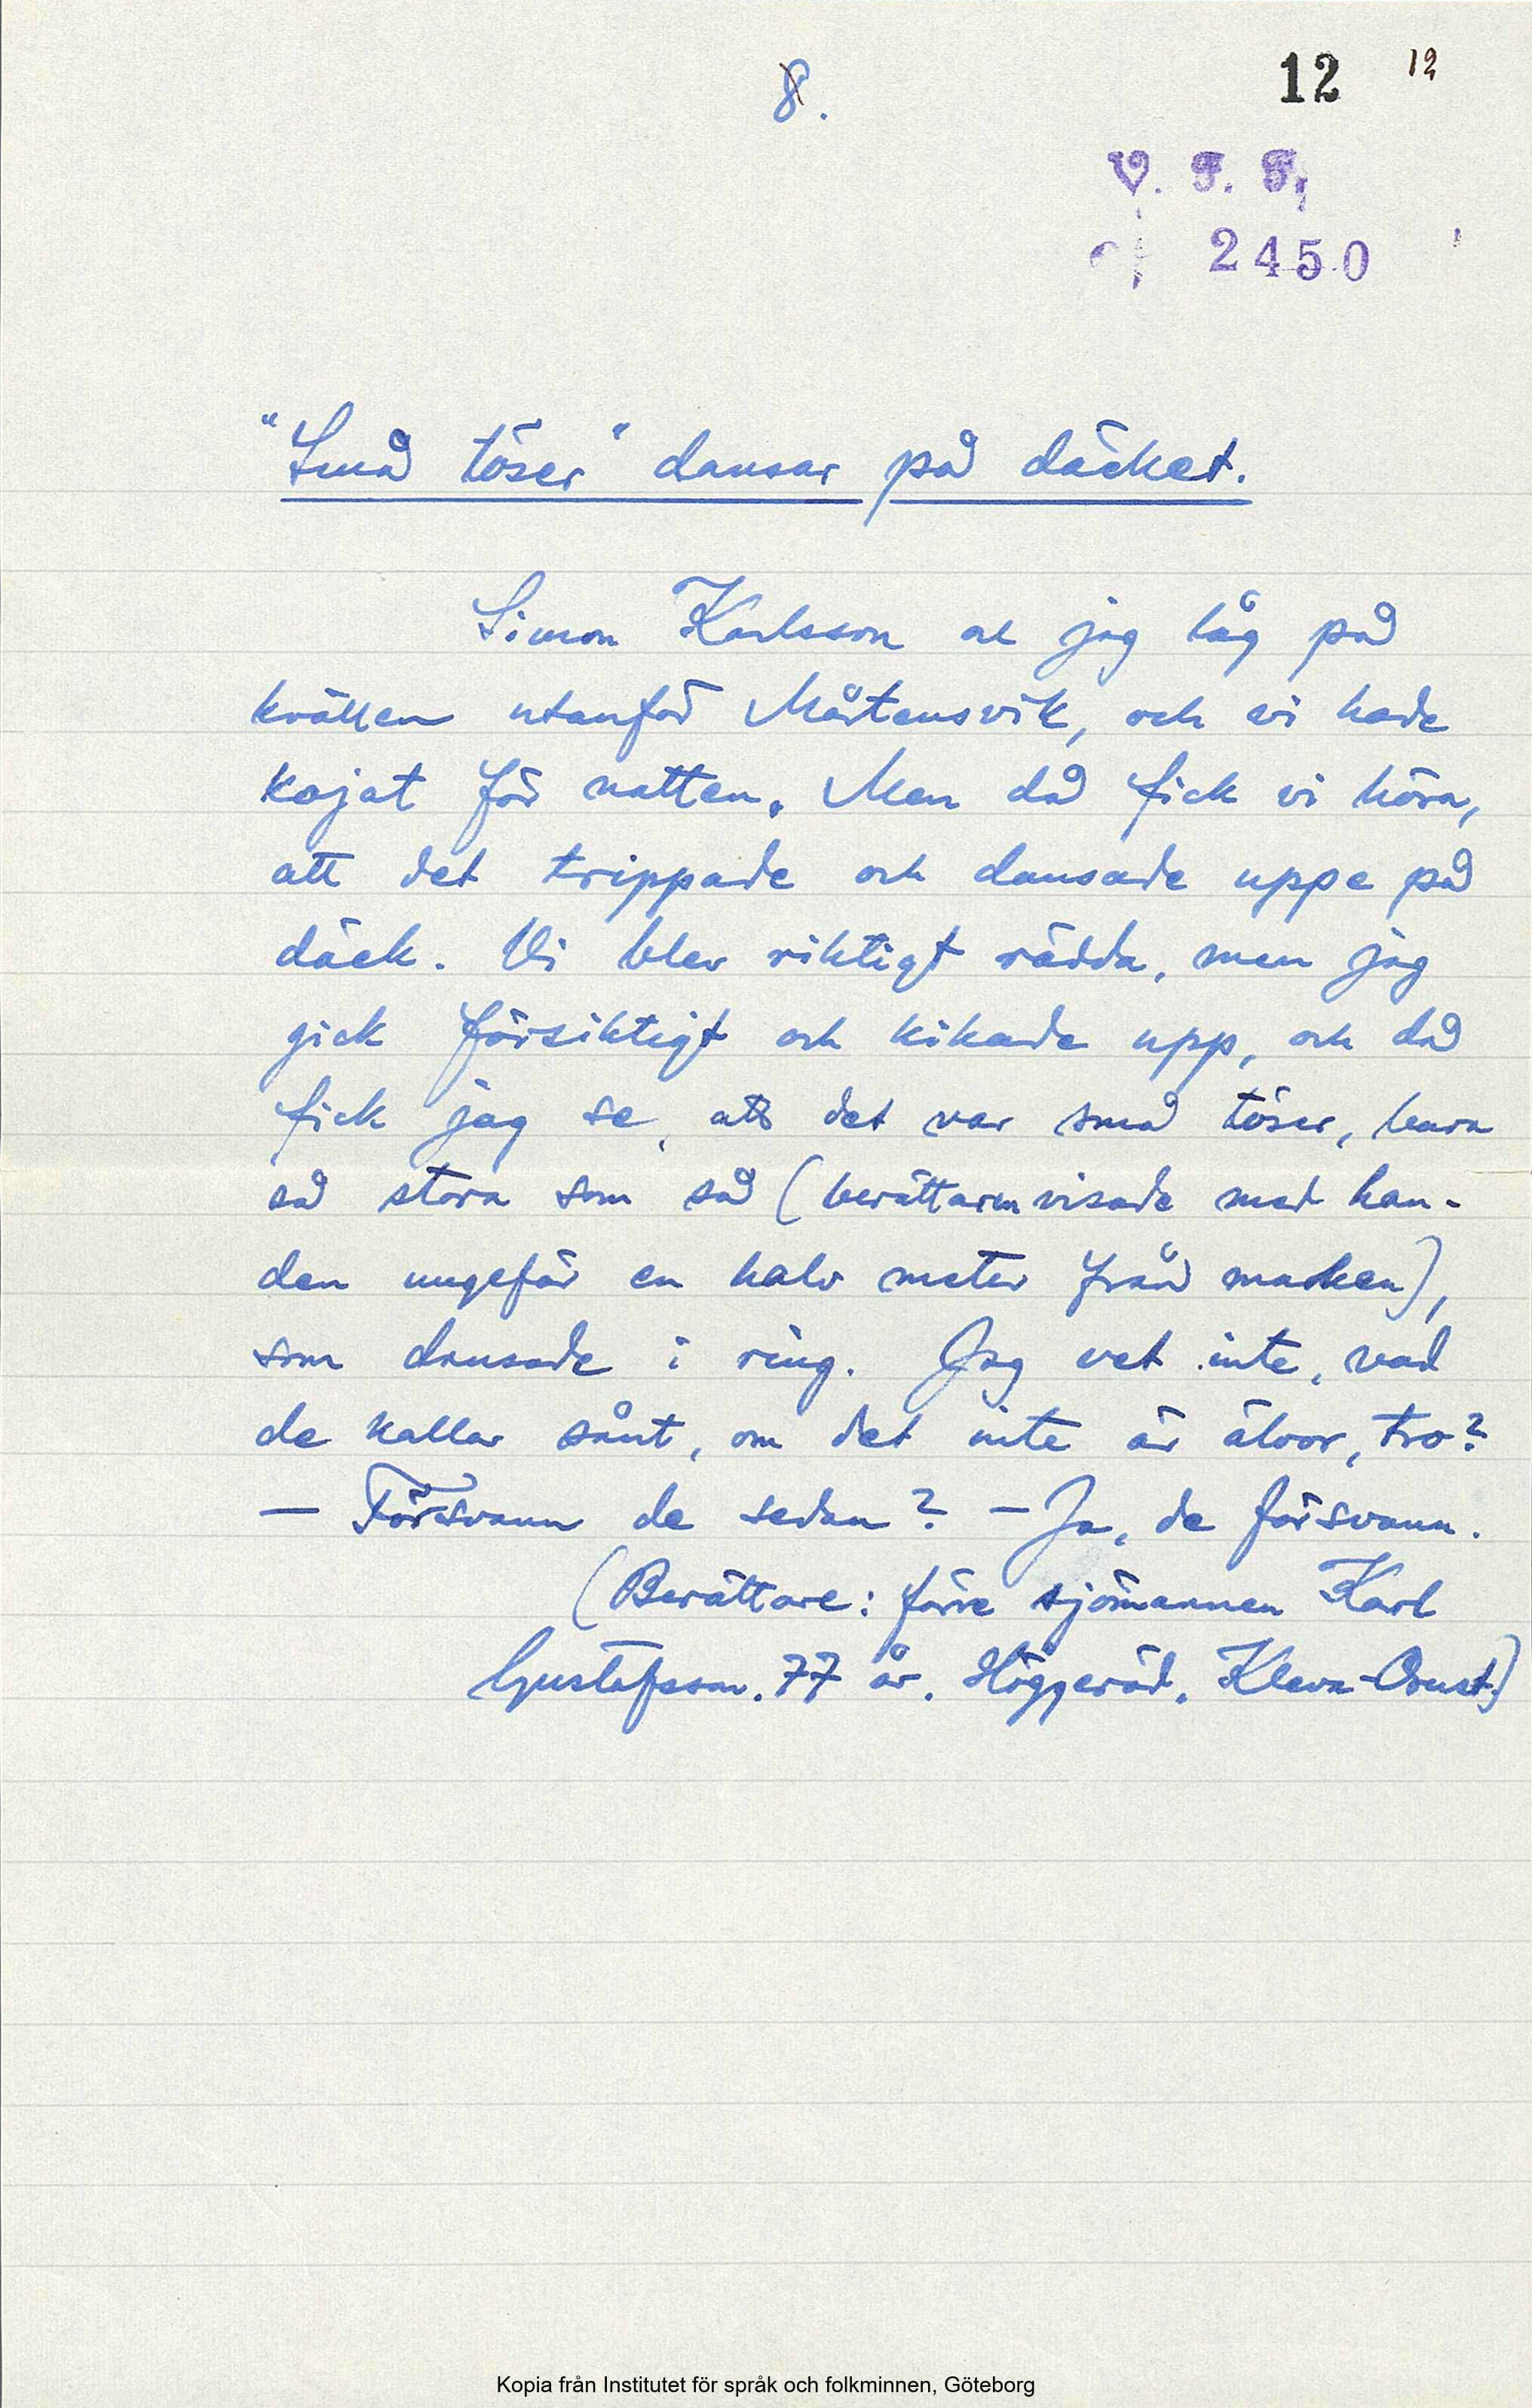 8.
12 12
V. F. F.
2450
"Små töser" dansar på däcket.
Simon Karlsson ock jag låg på
kvällen utanför Mårtensvik, och vi hade
kojat för natten. Men då fick vi höra,
att det trippade och dansade uppe på
däck. Vi blev riktigt rädda, men jag
gick försiktigt och kikade upp, och då
fick jag se, att det var små töser, bara
så stora som så (berättaren visade med han-
den ungefär en halv meter från marken),
som dansade i ring. Jag vet inte, vad
de kallar sånt, om det inte är älvor, tro?
— Försvann de sedan? — Ja, de försvann.
(Berättare: förre sjömannen Karl
Gustafsson. 77 år. Höggeröd. Kleva-Orust.)
Kopia från Institutet för språk och folkminnen, Göteborg